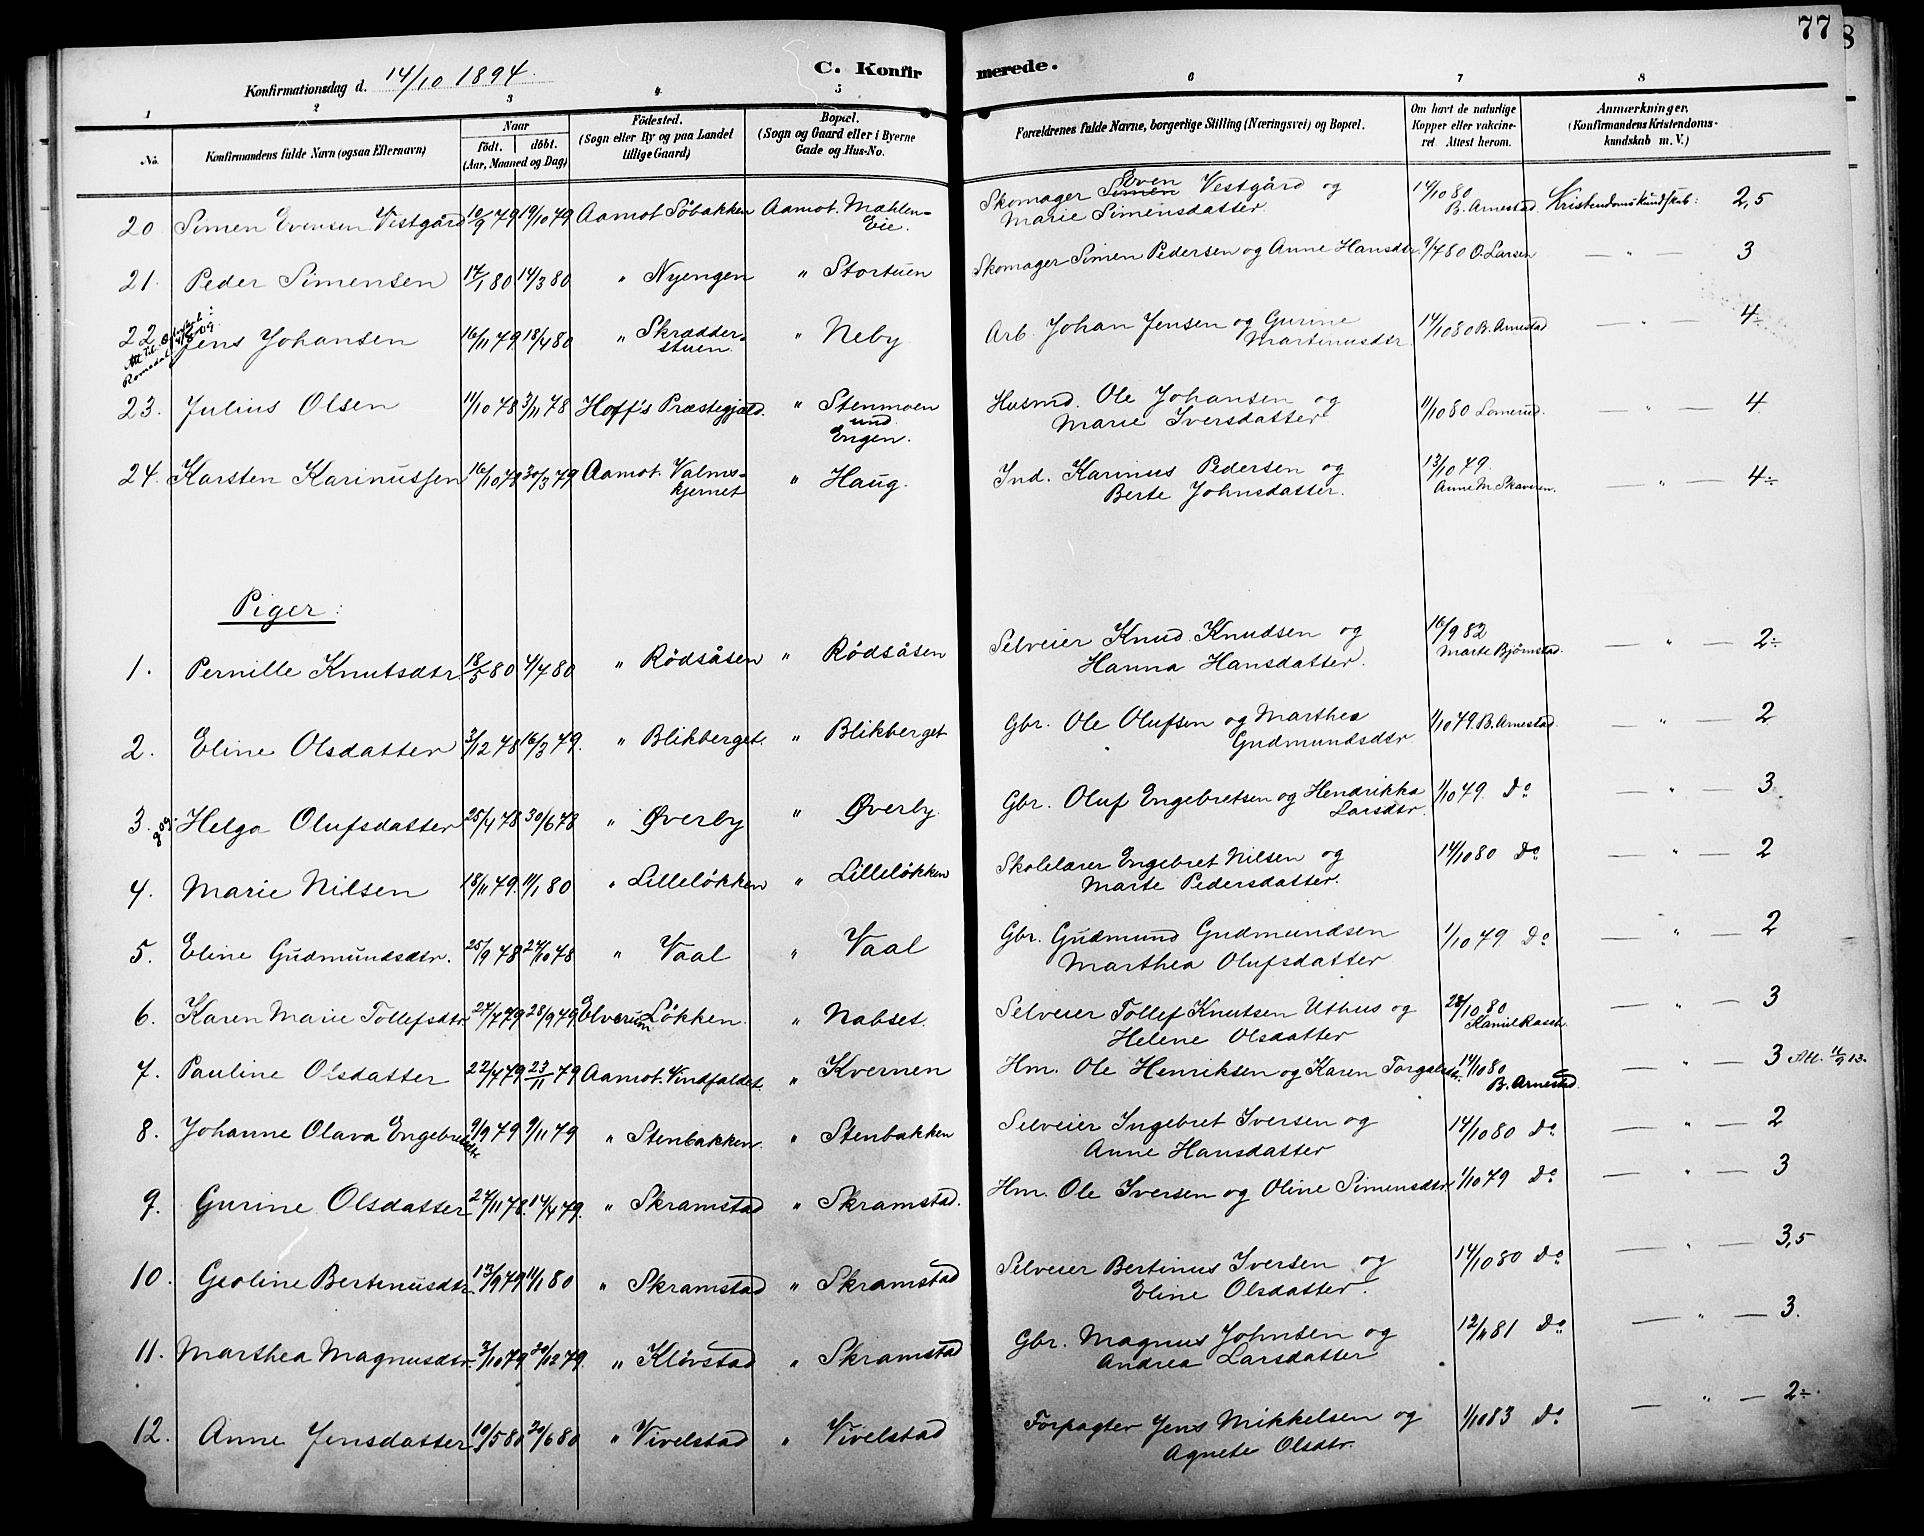 77
8
Konfirmationsdag d. 14/10 1894.
C. Konfirmerede.
1 2 3 4 5 6 7 8
No.
Konfirmandens fulde Navn (ogsaa Efternavn)
Naar
födt. döbt.
(Aar, Maaned og Dag)
Födested.
(Sogn eller By og paa Landet
tillige Gaard)
Bopæl.
(Sogn og Gaard eller i Byerne
Gade og Hus-No.
Forældrenes fulde Navne, borgerlige Stilling (Næringsvei) og Bopæl.
Om havt de naturlige
Kopper eller vakcine-
ret Attest herom.
Anmærkninger.
(Konfirmandens Kristendoms-
kundskab m. V.)
20 Simen Evensen Vestgård 10/9 79 19/10 79 Aamot Söbakken Aamot. Mæhlen- Eie. Skomager Simen Even Vestgård og Marie Simensdatter. 14/10 80 B. Arnestad Kristendomskundskab: 2,5
21. Peder Simensen 17/1 80 14/3 80 " Nyengen " Stortuen Skomager Simen Pedersen og Anne Hansdtr. 9/7 80 O. Larsen — " — 3
22. Jens Johansen 16/11 79 18/4 80 " Skrædder- stuen. " Neby Arb. Johan Jensen og Gurine Martinusdtr. 14/10 80 B. Arnestad — " — 4÷
23. Julius Olsen 11/10 78 3/11 78 Hoff's Præstegjæld. " Stenmoen und. Engen. Husmd. Ole Johansen og Marie Iversdatter 11/10 80 Lomerud. — " — 4.
24. Karsten Karinussen 16/10 78 30/3 79 Aamot. Valms- kjernet " Haug. Ind. Karinus Pedersen og Berte Johnsdatter. 13/10 79. Anne M. Skaveren. — " — 4÷
Piger:
1. Pernille Knutsdtr 18/5 80 4/7 80 " Rödsåsen " Rödsåsen Selveier Knud Knudsen og Hanna Hansdatter. 16/9 82 Marte Bjørnstad. — " — 2÷
2. Eline Olsdatter 3/12 78 16/3 79. " Blikberget. " Blikberget Gbr. Ole Olufsen og Marthea Gudmundsdtr. 1/10 79. B. Arnestad. — " — 2
3. Helga Olufsdatter 25/4 78 30/6 78 " Øverby " Øverby. Gbr. Oluf Engebretsen og Hendrikka Larsdtr. 1/10 79. Do — " — 3.
4. Marie Nilsen 18/11 79. 11/1 80 " Lilleløkken " Lilleløkken Skolelærer Engebret Nilsen og Marte Pedersdatter. 14/10 80 Do — " — 2
5. Eline Gudmundsdtr. 25/9 78 27/10 78 " Vaal " Vaal Gbr. Gudmund Gudmundsen Marthea Olufsdatter 1/10 79 Do — " — 2
6. Karen Marie Tollefsdtr 27/7 79 28/9 79 Elverum Løkken. " Nabset. Selveier Tollef Knutsen Uthus og Helene Olsdatter 28/10 80 Kamil Rasch. — " — 3
7. Pauline Olsdatter 22/4 79 23/11 79 Aamot. Vindfaldet. " Kvernen Hm. Ole Henriksen og Karen Torgalsdtr. 14/10 80 B. Arnestad — " — 3 Att. 11/9 13.
8. Johanne Olava Engebretsdtr 9/9 79 9/11 79 " Stenbakken. " Stenbakken Selveier Ingebret Iversen og Anne Hansdatter 14/10 80 Do — " — 2
9. Gurine Olsdatter 27/11 78. 14/4 79. " Skramstad " Skramstad. Hm. Ole Iversen og Oline Simensdtr. 1/10 79 Do — " — 3
10. Geoline Bertinusdtr. 13/9 79 11/1 80 " Skramstad " Skramstad Selveier Bertinus Iversen og Eline Olsdatter. 14/10 80 Do — " — 3,5
11. Marthea Magnusdtr. 3/10 79 26/12 79. " Kløvstad " Skramstad Gbr. Magnus Johnsen og Andrea Larsdatter 12/11 81 Do — " — 3.
12. Anne Jensdatter 10/5 80 20/6 80 " Vivelstad " Vivelstad Forpagter Jens Mikkelsen og Agnete Olsdtr. 1/10 83 Do — " — 2÷.